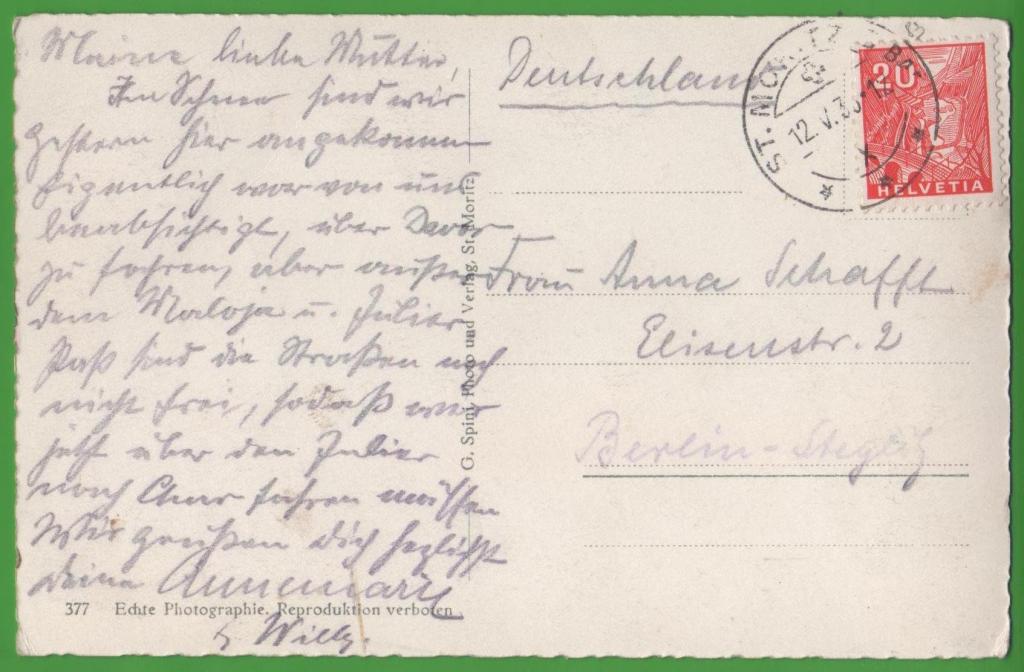 Meine liebe Mutter,
Im Schnee sind wir
gestern hier angekommen
Eigentlich war von uns
beabsichtigt, über Davos
zu fahren, aber außer
dem Maloja u. Julier
Paß sind die Straßen noch
nicht frei, sodaß wir
jetzt über den Julier
nach Chur fahren müssen
Wir grüßen dich herzlichst
deine Annemarie
& Willy.
377 Echte Photographie. Reproduktion verboten
G. Spini, Photo und Verlag, St. Moritz
Deutschland
ST. MORITZ BAD
12.V.36
HELVETIA
Frau Anna Schafft
Elisenstr. 2
Berlin-Steglitz